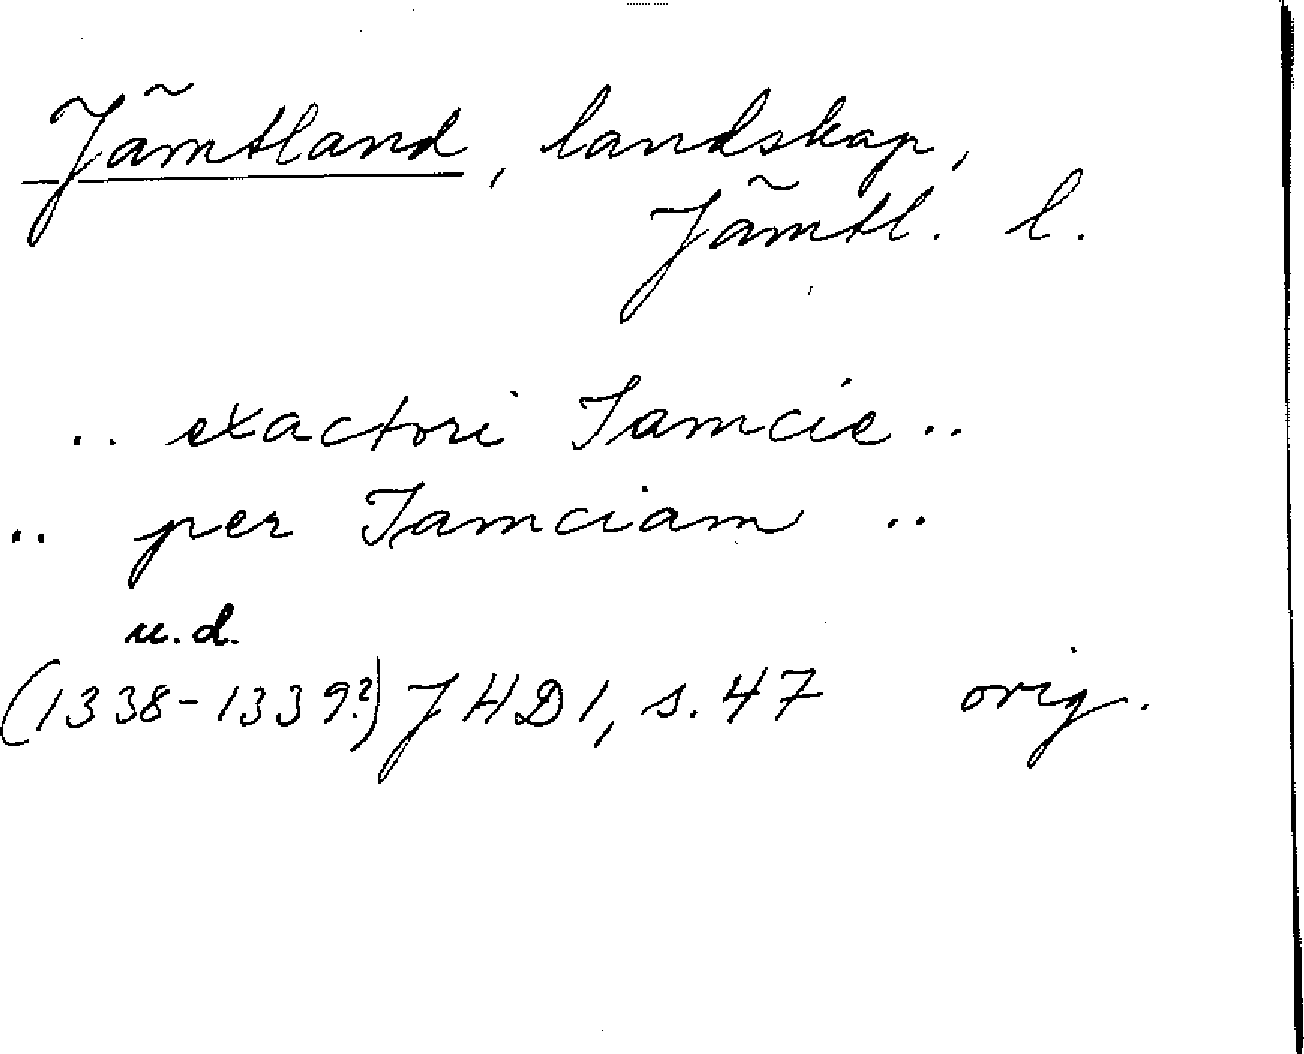 Jämtland, landskap,
Jämtl. l.
.. exactori Iamcie ..
.. per Iamciam ..
u.d.
(1338-1339?) JHD1, s. 47 orig.